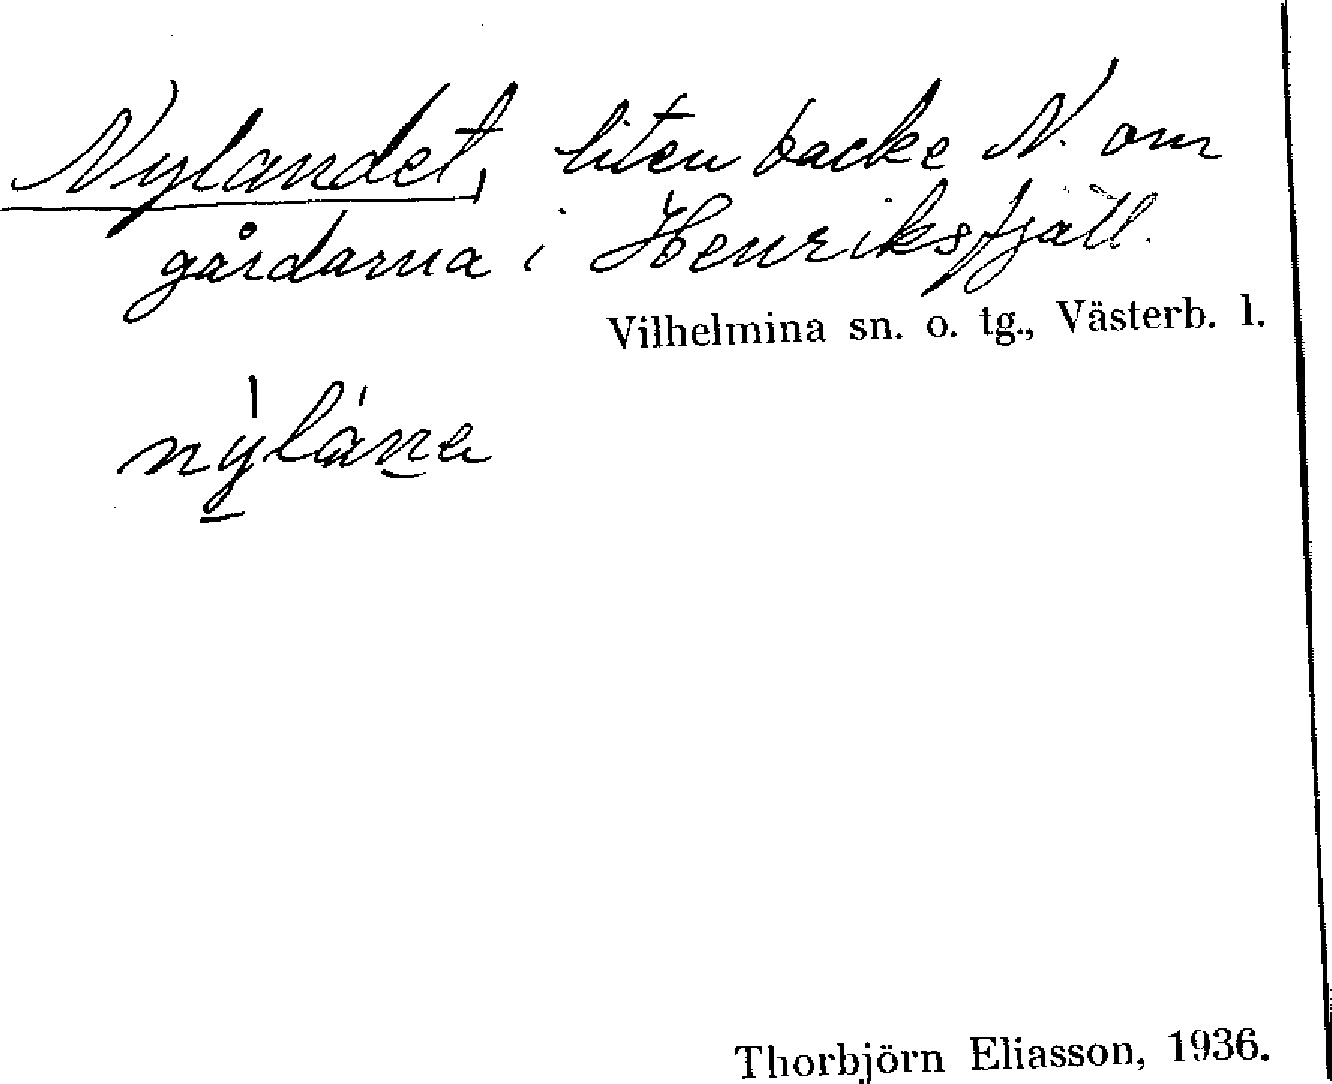 Nylandet, liten backe N. om
gårdarna i Henriksfjäll.
Vilhelmina sn. o. tg., Västerb. l.
Thorbjörn Eliasson, 1936.